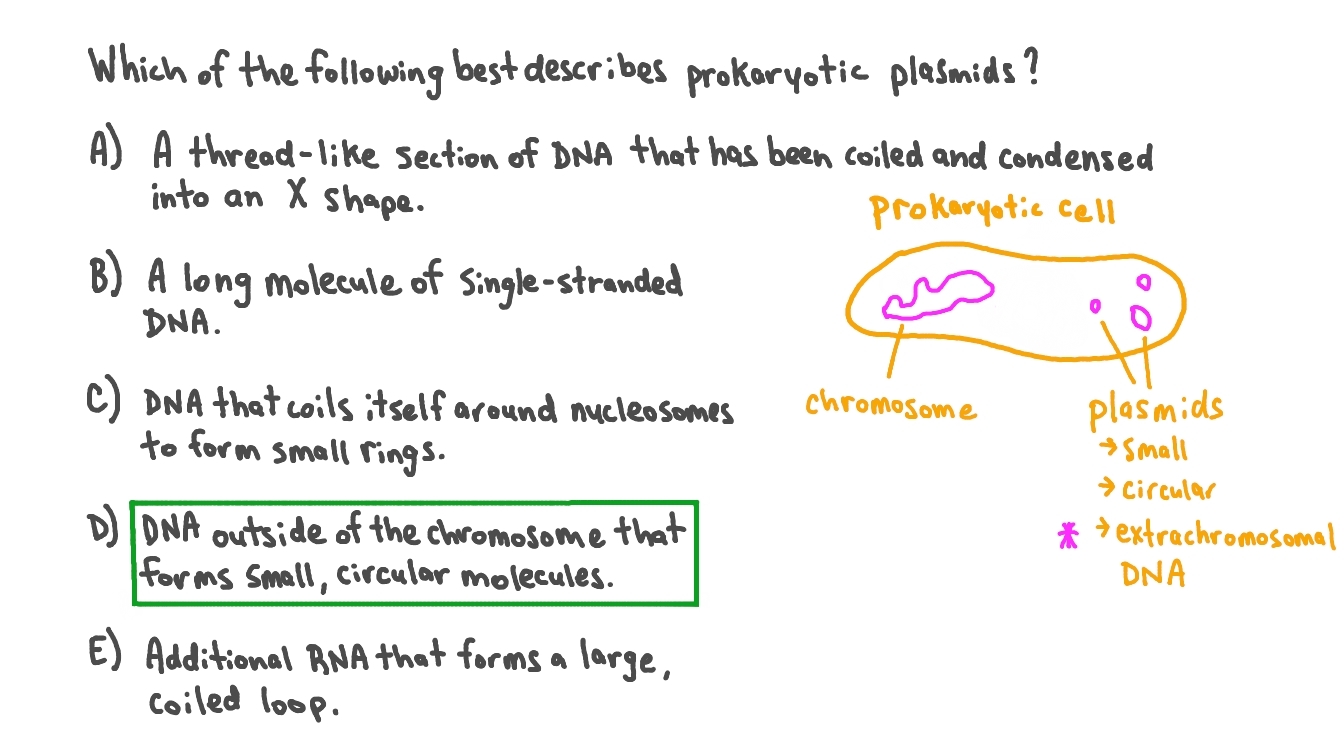 Which of the following best describes prokaryotic plasmids?
A) A thread-like section of DNA that has been coiled and condensed
into an X shape.
B) A long molecule of single-stranded
DNA.
C) DNA that coils itself around nucleosomes
to form small rings.
D) DNA outside of the chromosome that
forms small, circular molecules.
E) Additional RNA that forms a large,
coiled loop.
prokaryotic cell
chromosome
plasmids
→ small
→ circular
* → extrachromosomal
DNA